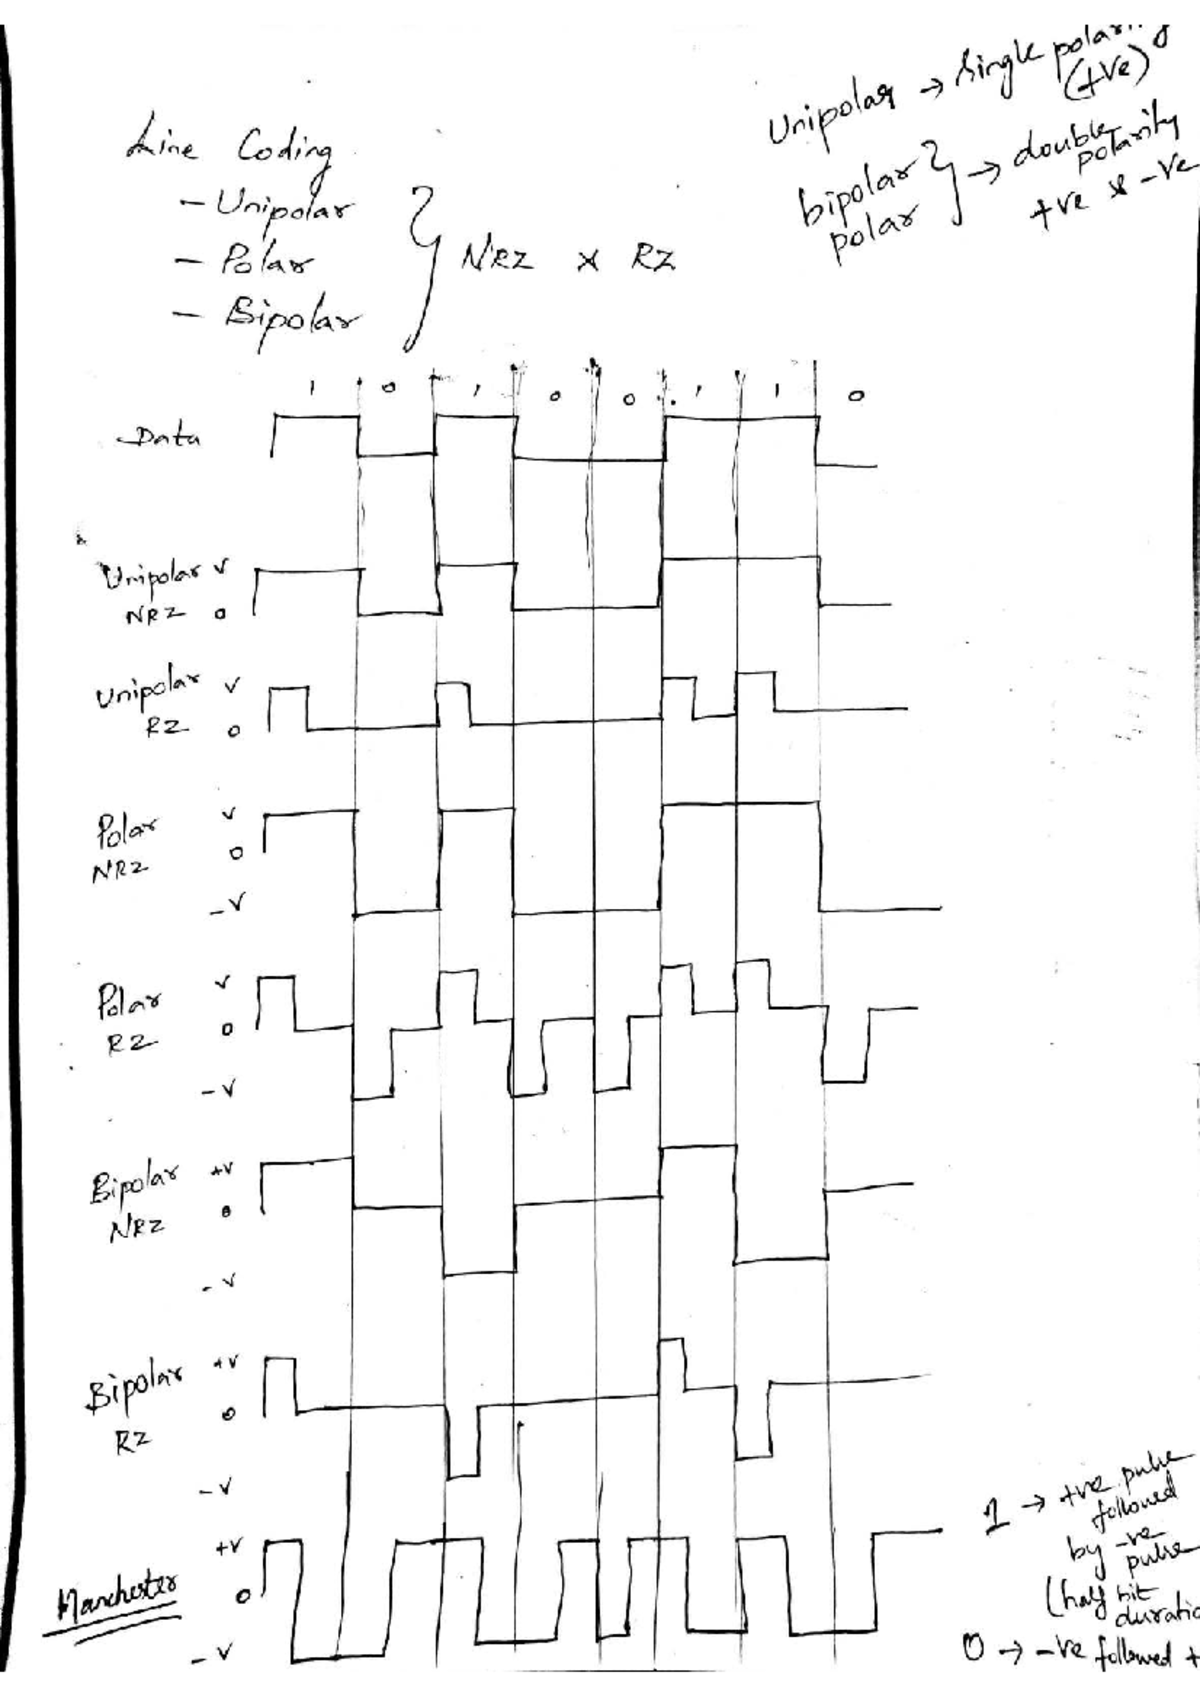 Unipolar → Single polarity
(+ve)
bipolar } → double
polar polarity
+ve & -ve
Line Coding
- Unipolar
- Polar } NRZ & RZ
- Bipolar
1 0 1 0 0 1 1 0
Data
Unipolar V
NRZ 0
Unipolar V
RZ 0
Polar V
NRZ 0
-V
Polar V
RZ 0
-V
Bipolar +V
NRZ 0
-V
Bipolar +V
RZ 0
-V
+V
Manchester 0
-V
1 → +ve pulse
followed
by -ve
pulse
(half bit
duratio
0 → -ve followed +